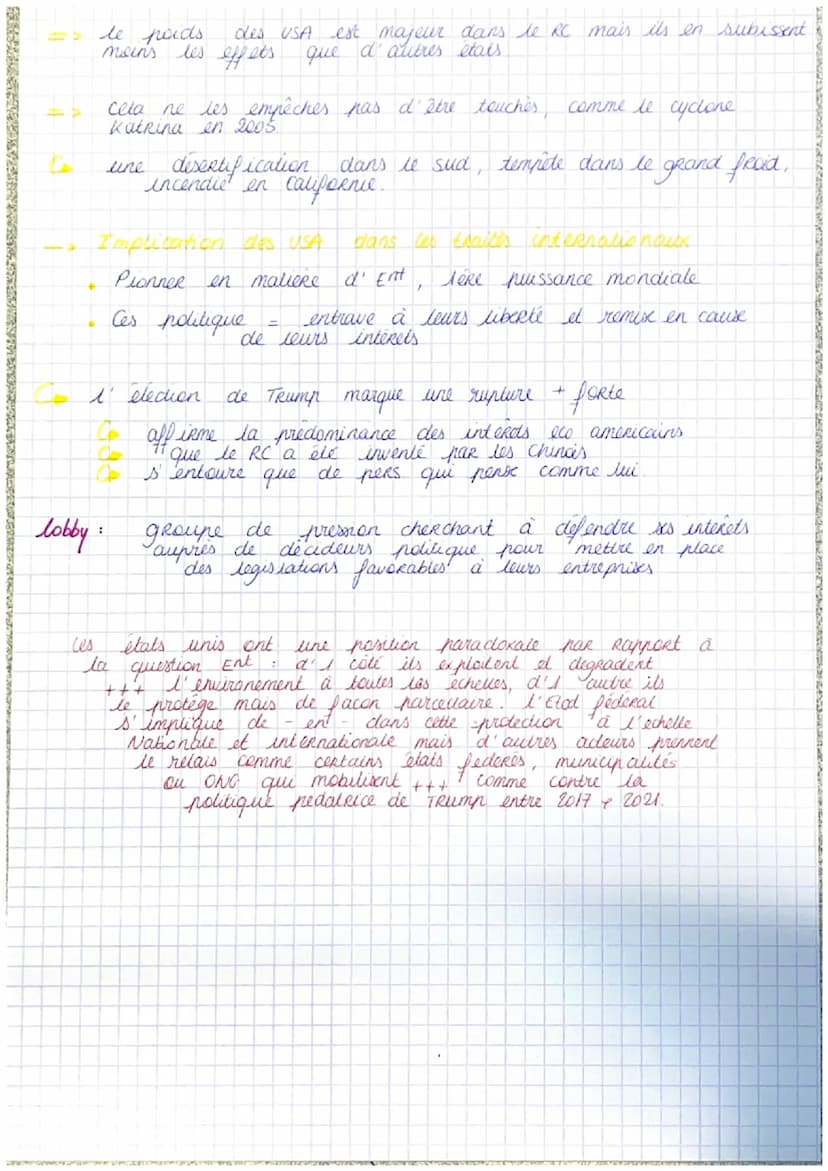 => le poids des USA est majeur dans le RC mais ils en subissent
moins les effets que d'autres états.
=> cela ne les empêches pas d'être touchés, comme le cyclone
Katrina en 2005.
↳ une désertification dans le sud, tempête dans le grand froid,
incendie en Californie.
-> Implication des USA dans les traités internationaux
• Pionner en matière d'Ent, 1ère puissance mondiale
• Ces politique = entrave à leurs liberté et remise en cause
de leurs intérêts
↳ l'élection de Trump marque une rupture + forte
↳ affirme la prédominance des intérêts éco américains
↳ " que le RC a été inventé par les Chinois
↳ s'entoure que de pers qui pense comme lui.
lobby : groupe de pression cherchant à défendre ses intérêts
auprès de décideurs politique pour mettre en place
des législations favorables à leurs entreprises
Les états unis ont une position paradoxale par Rapport à
la question Ent : d'1 côté ils exploitent et dégradent
+++ l'environement à toutes les échelles, d'1 autre ils
le protège mais de façon parcellaire. L'Etat fédéral
s'implique de - en - dans cette protection à l'échelle
Nationale et internationale mais d'autres acteurs prennent
le relais comme certains états fédérés, municipalités
ou ONG qui mobilisent +++ comme contre la
politique pédatrice de Trump entre 2017 & 2021.